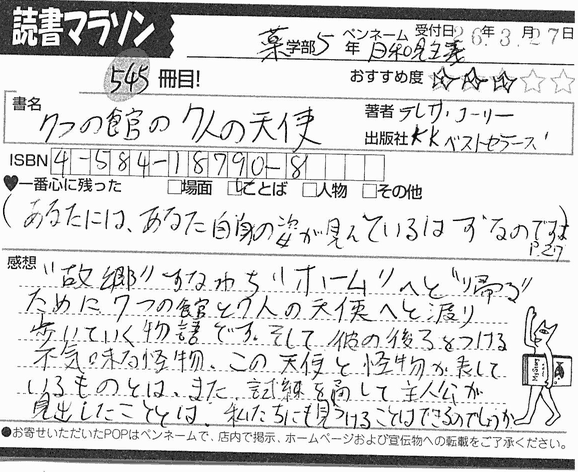 読書マラソン
ペンネーム 受付日26年3月27日
薬学部5年 日和見主義
545冊目!
おすすめ度 ☆☆☆☆☆
書名
7つの館の7人の天使
著者 テレサ・コーリー
出版社 KKベストセラーズ
ISBN 4-584-18790-8
♥一番心に残った □場面 □ことば □人物 □その他
(あなたには、あなた自身の姿が見えているはずなのですよ
P.27
感想
"故郷"すなわち"ホーム"へと"帰る"
ために7つの館と7人の天使へと渡り
歩いていく物語です。そして彼の後をつける
不気味な怪物、この天使と怪物が表して
いるものとは、また試練を通して主人公が
見出したこととは、私たちにも見つけることはできるのでしょうか
●お寄せいただいたPOPはペンネームで、店内で掲示、ホームページおよび宣伝物への転載をご了承ください。